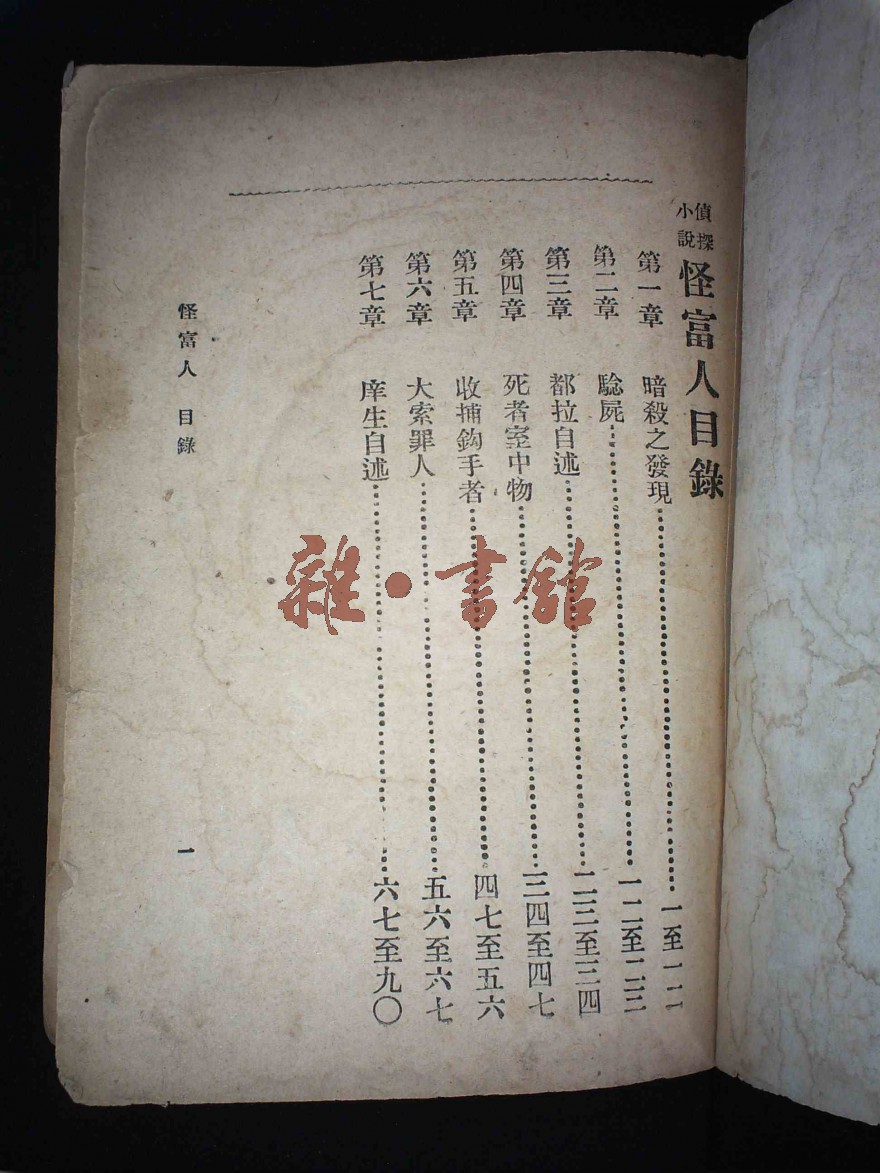 偵探小說 怪富人目錄
第一章 暗殺之發現……一至一二
第二章 騐屍……一二至二三
第三章 都拉自述……二三至三四
第四章 死者室中物……三四至四七
第五章 收捕鈎手者……四七至五六
第六章 大索罪人……五六至六七
第七章 庠生自述……六七至九〇
怪富人 目錄 一
雜·書館